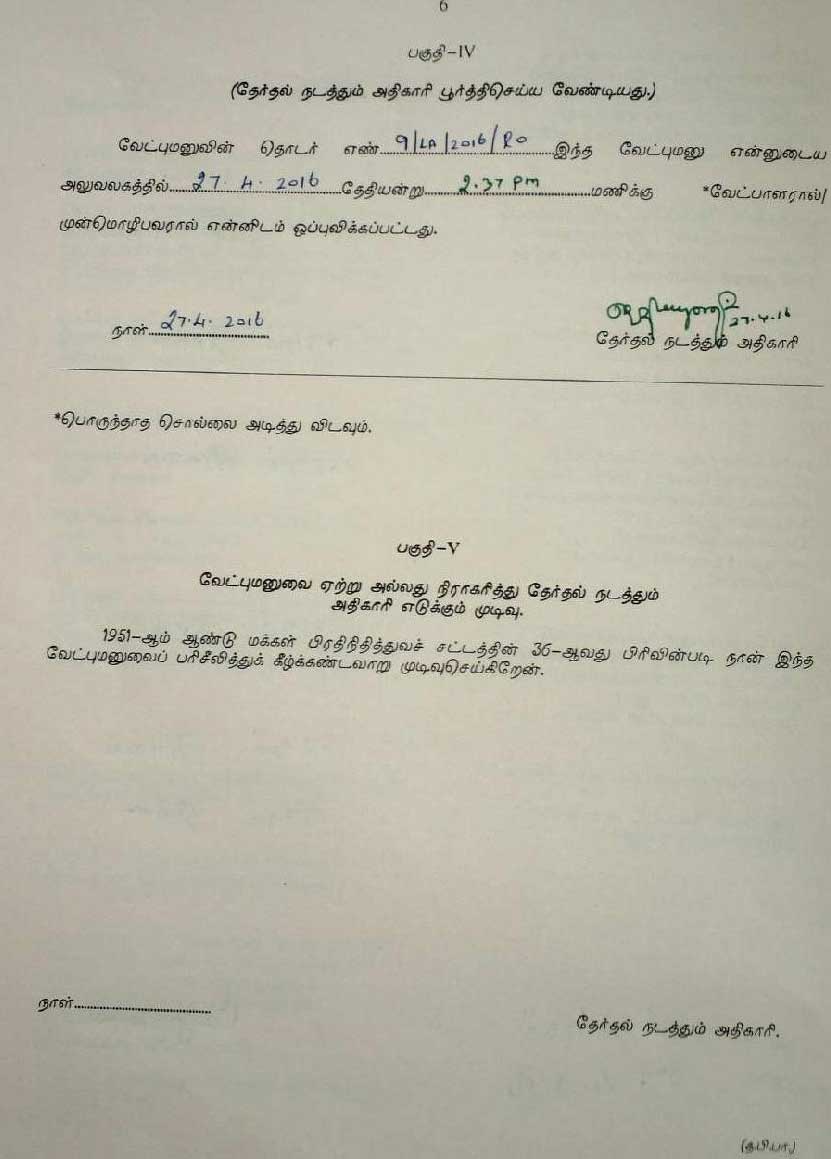 6
பகுதி–IV
(தேர்தல் நடத்தும் அதிகாரி பூர்த்திசெய்ய வேண்டியது.)
வேட்புமனுவின் தொடர் எண் 9/LA/2016/RO இந்த வேட்புமனு என்னுடைய
அலுவலகத்தில் 27.4.2016 தேதியன்று 2.37 PM மணிக்கு *வேட்பாளரால்/
முன்மொழிபவரால் என்னிடம் ஒப்புவிக்கப்பட்டது.
நாள் 27.4.2016
27.4.16
தேர்தல் நடத்தும் அதிகாரி
*பொருந்தாத சொல்லை அடித்து விடவும்.
பகுதி–V
வேட்புமனுவை ஏற்று அல்லது நிராகரித்து தேர்தல் நடத்தும்
அதிகாரி எடுக்கும் முடிவு.
1951–ஆம் ஆண்டு மக்கள் பிரதிநிதித்துவச் சட்டத்தின் 36–ஆவது பிரிவின்படி நான் இந்த
வேட்புமனுவைப் பரிசீலித்துக் கீழ்க்கண்டவாறு முடிவுசெய்கிறேன்.
நாள்
தேர்தல் நடத்தும் அதிகாரி.